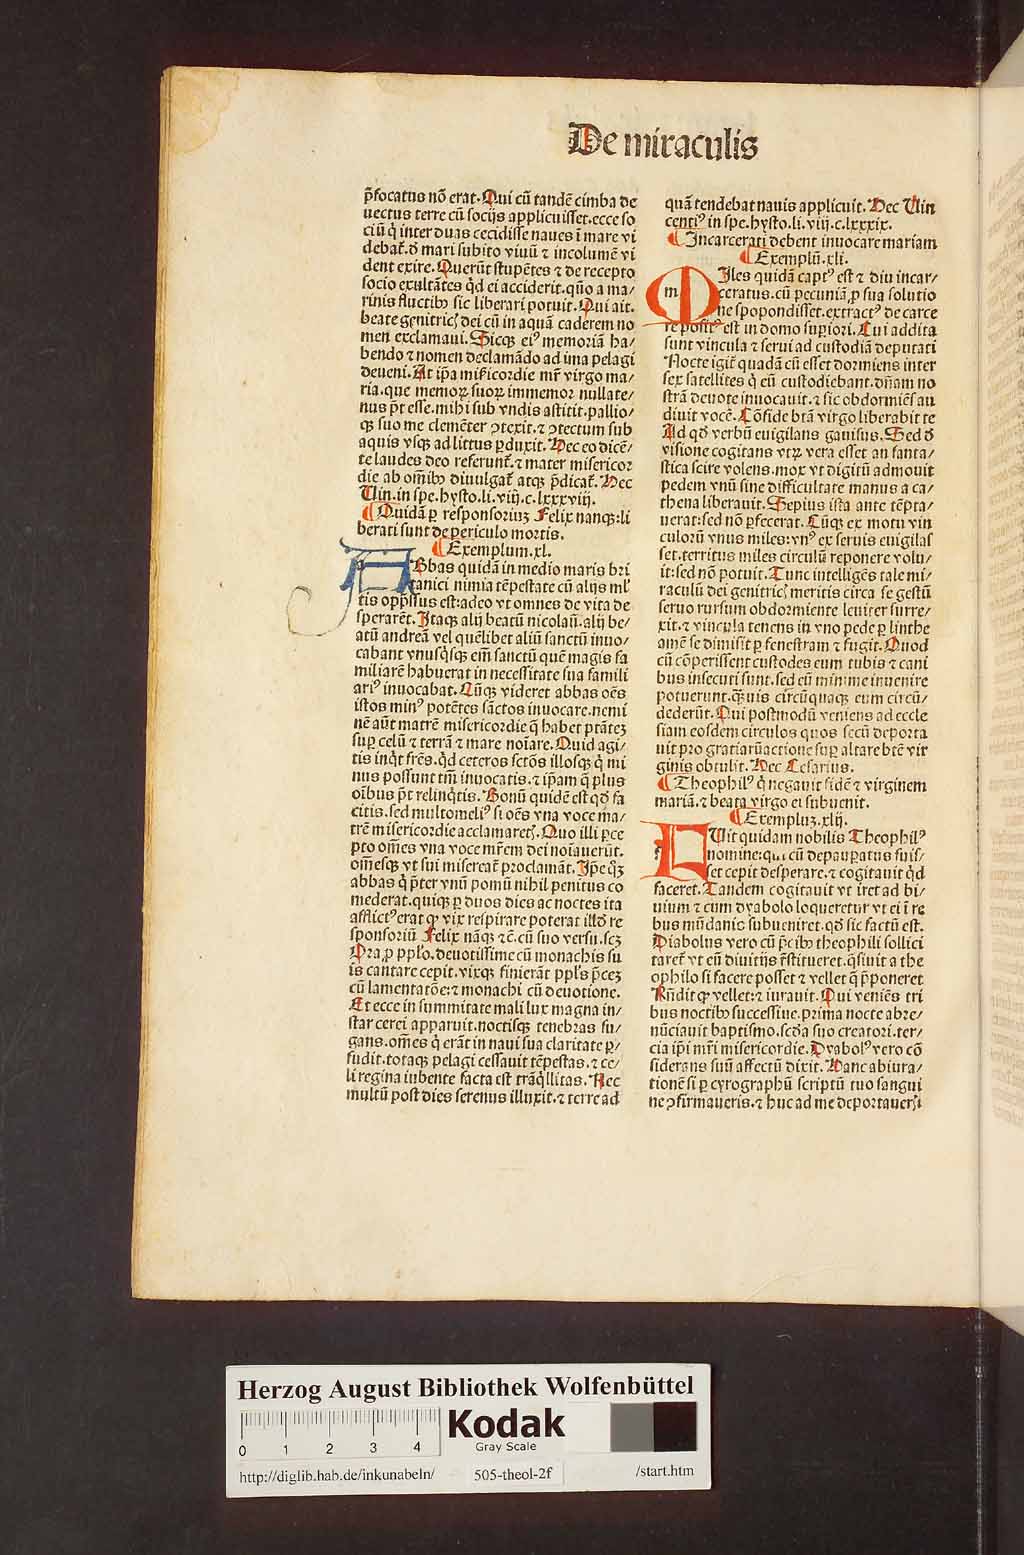 De miraculis
p̄focatus nō erat. Qui cū tandē cimba de
uectus terre cū socijs applicuisset. ecce so
ciū q̇ inter duas cecidisse naues ī mare vi
debāt. ꝺ mari subito viuū ⁊ incolumē vi
dent exire. Querūt stupētes ⁊ de recepto
socio exultātes qd ei acciderit. qūo a ma⸗
rinis fluctibꝰ sic liberari potuit. Qui ait.
beate genitricꝭ dei cū in aquā caderem no
men exclamaui. Sicqꝫ eiꝰ memoriā ha⸗
bendo ⁊ nomen declamādo ad ima pelagi
deueni. At ip̄a mīcordie mr̄ virgo ma⸗
ria. que memoꝝ suoꝝ immemor nullate⸗
nus p̄t esse. mihi sub vndis astitit. pallio⸗
qꝫ suo me clemēter ꝯtexit. ⁊ ꝯtectum sub
aquis vsqꝫ ad littus ꝑduxit. Hec eo dicē⸗
te laudes deo referunt̄. ⁊ mater misericor
die ab om̄ibꝰ diuulgat̄ atqꝫ p̄dicat̄. Hec
Uin. in spe. hysto. li. viij. c. lxxxviij.
¶ Quidā ꝑ responsoriuꝫ Felix nanqꝫ: li
berati sunt de periculo mortis.
¶ Exemplum. xl.
ABbas quidā in medio maris bri
tanici nimia tēpestate cū alijs ml̓
tis opp̄ssus est: adeo vt omnes de vita de
sperarēt. Itaqꝫ alij beatū nicolaū. alij be⸗
atū andreā vel quēlibet aliū sanctū inuo⸗
cabant vnusq̇sqꝫ em̄ sanctū quē magis fa
miliarē habuerat in necessitate sua famili
ariꝰ inuocabat. Cūqꝫ videret abbas oēs
istos minꝰ potētes sāctos inuocare. nemi
nē aūt matrē misericordie q̄ habet ptātez
suꝑ celū ⁊ terrā ⁊ mare noīare. Quid agi⸗
tis inq̇t frēs. qd ceteros sctōs illosqꝫ q̇ mi
nus possunt tm̄ inuocatis. ⁊ ip̄am q̄ plus
oībus p̄t relinq̇tis. Bonū quidē est qd fa
citis. sed multo meliꝰ si oēs vna voce ma⸗
trē misericordie acclamaretꝭ. Quo illi p̄ce
pto om̄es vna voce mr̄em dei noīauerūt.
om̄esqꝫ vt sui misereat̄ proclamāt. Ip̄e qꝫ
abbas q̇ p̄ter vnū pomū nihil penitus co
mederat. quiqꝫ ꝑ duos dies ac noctes ita
afflictꝰ erat ꝙ vix respirare poterat illd̄ re
sponsoriū Felix nāqꝫ ⁊c̄. cū suo versu. scꝫ
Ora ꝓ pplo. deuotissime cū monachis su
is cantare cepit. vixqꝫ finierāt ppl̓s p̄ceꝫ
cū lamentatōe: ⁊ monachi cū deuotione.
Et ecce in summitate mali lux magna in⸗
star cerei apparuit. noctisqꝫ tenebras fu⸗
gans. om̄es q̇ erāt in naui sua claritate ꝑ⸗
fudit. totaqꝫ pelagi cessauit tēpestas. ⁊ ce⸗
li regina iubente facta est trāq̇llitas. Nec
multū post dies serenus illuxit. ⁊ terre ad
quā tendebat nauis applicuit. Hec Uin
centiꝰ in spe. hysto. li. viij. c. lxxxix.
¶ Incarcerati debent inuocare mariam
¶ Exemplū. xli.
m MIles quidā captꝰ est ⁊ diu incar⸗
ceratus. cū pecuniā ꝓ sua solutio
ne spopondisset. extractꝰ de carce
re positꝰ est in domo suꝑiori. Cui addita
sunt vincula ⁊ serui ad custodiā deputati
Nocte igit̄ quadā cū esset dormiens inter
sex satellites q̇ eū custodiebant. dn̄am no
strā deuote inuocauit. ⁊ sic obdormiēs au
diuit vocē. Cōfide btā virgo liberabit te
Ad qd verbū euigilans gauisus. Sed ꝺ
visione cogitans vtꝝ vera esset an fanta⸗
stica scire volens. mox vt digitū admouit
pedem vnū sine difficultate manus a ca⸗
thena liberauit. Sepius ista ante tēpta⸗
uerat: sed nō ꝑfecerat. Cūqꝫ ex motu vin
culorū vnus miles: vnꝰ ex seruis euigilaſ
set. territus miles circulū reponere volu⸗
it: sed nō potuit. Tunc intelligēs tale mi⸗
raculū dei genitricꝭ meritis circa se gestū
seruo rursum obdormiente leuiter surre⸗
xit. ⁊ vincula tenens in vno pede ꝑ linthe
amē se dimisit ꝑ fenestram ⁊ fugit. Quod
cū cōperissent custodes eum tubis ⁊ cani
bus insecuti sunt. sed eū minime inuenire
potuerunt. q̄uis circūquaqꝫ eum circū⸗
dederūt. Qui postmodū veniens ad eccle
siam eosdem circulos quos secū deporta
uit pro gratiarū actione suꝑ altare btē vir
ginis obtulit. Hec Cesarius.
¶ Theophilꝰ q̇ negauit fidē ⁊ virginem
mariā. ⁊ beata virgo ei subuenit.
¶ Exempluꝫ. xlij.
FUit quidam nobilis Theophilꝰ
nomine: qui cū depauꝑatus fuis⸗
set cepit desperare. ⁊ cogitauit qd
faceret. Tandem cogitauit vt iret ad bi⸗
uium ⁊ cum dyabolo loqueretur vt ei ī re
bus mūdanis subueniret. qd sic factū est.
Diabolus vero cū p̄cibꝰ theophili sollici
taret̄ vt eū diuitijs r̄stitueret. q̄siuit a the
ophilo si facere posset ⁊ vellet q̄ p̄poneret
Rn̄dit ꝙ vellet: ⁊ iurauit. Qui veniēs tri
bus noctibꝰ successiue. prima nocte abre⸗
nūciauit baptismo. scd̄a suo creatori. ter⸗
cia ip̄i mr̄i misericordie. Dyabolꝰ vero cō
siderans suū affectū dixit. Hanc abiura⸗
tionē si ꝑ cyrographū scriptū tuo sangui
ne ꝯfirmaueris. ⁊ huc ad me deportauerſ
Herzog August Bibliothek Wolfenbüttel
0 1 2 3 4
Kodak
Gray Scale
http://diglib.hab.de/inkunabeln/ 505-theol-2f /start.htm